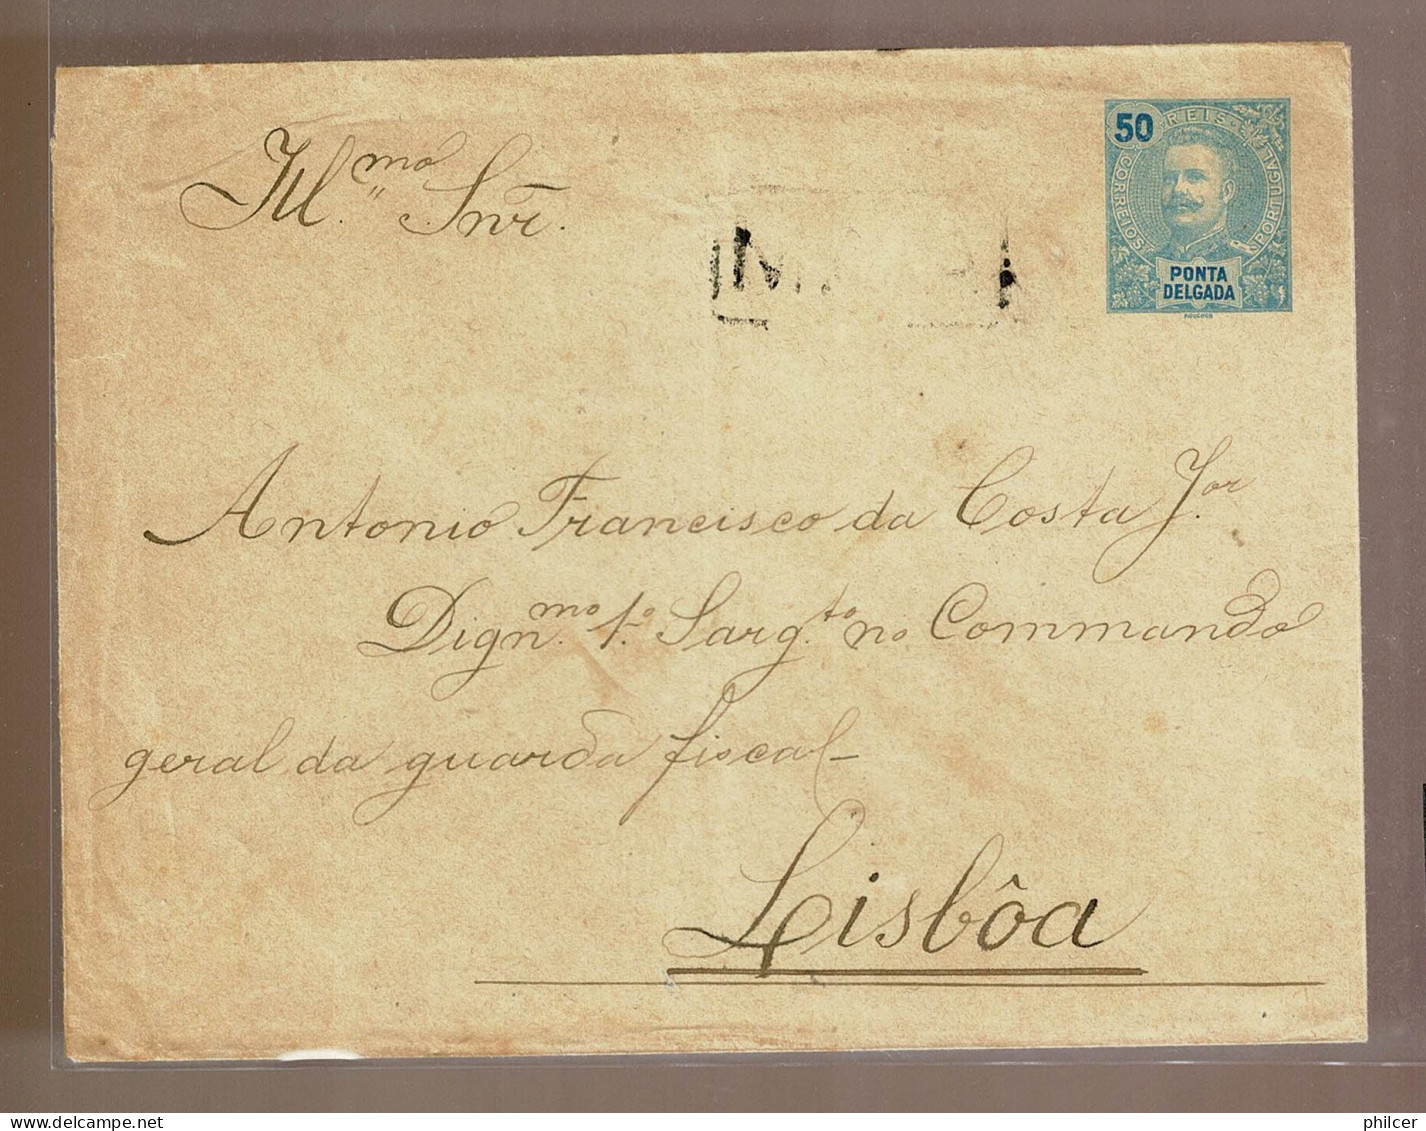 Ill.mo Snr.
50
REIS
CORREIOS
PORTUGAL
PONTA
DELGADA
MOUCHON
Antonio Francisco da Costa Jor.
Dign.mo 1.o Sarg.to no Commando
geral da guarda fiscal
Lisbôa
delcampe.net
philcer